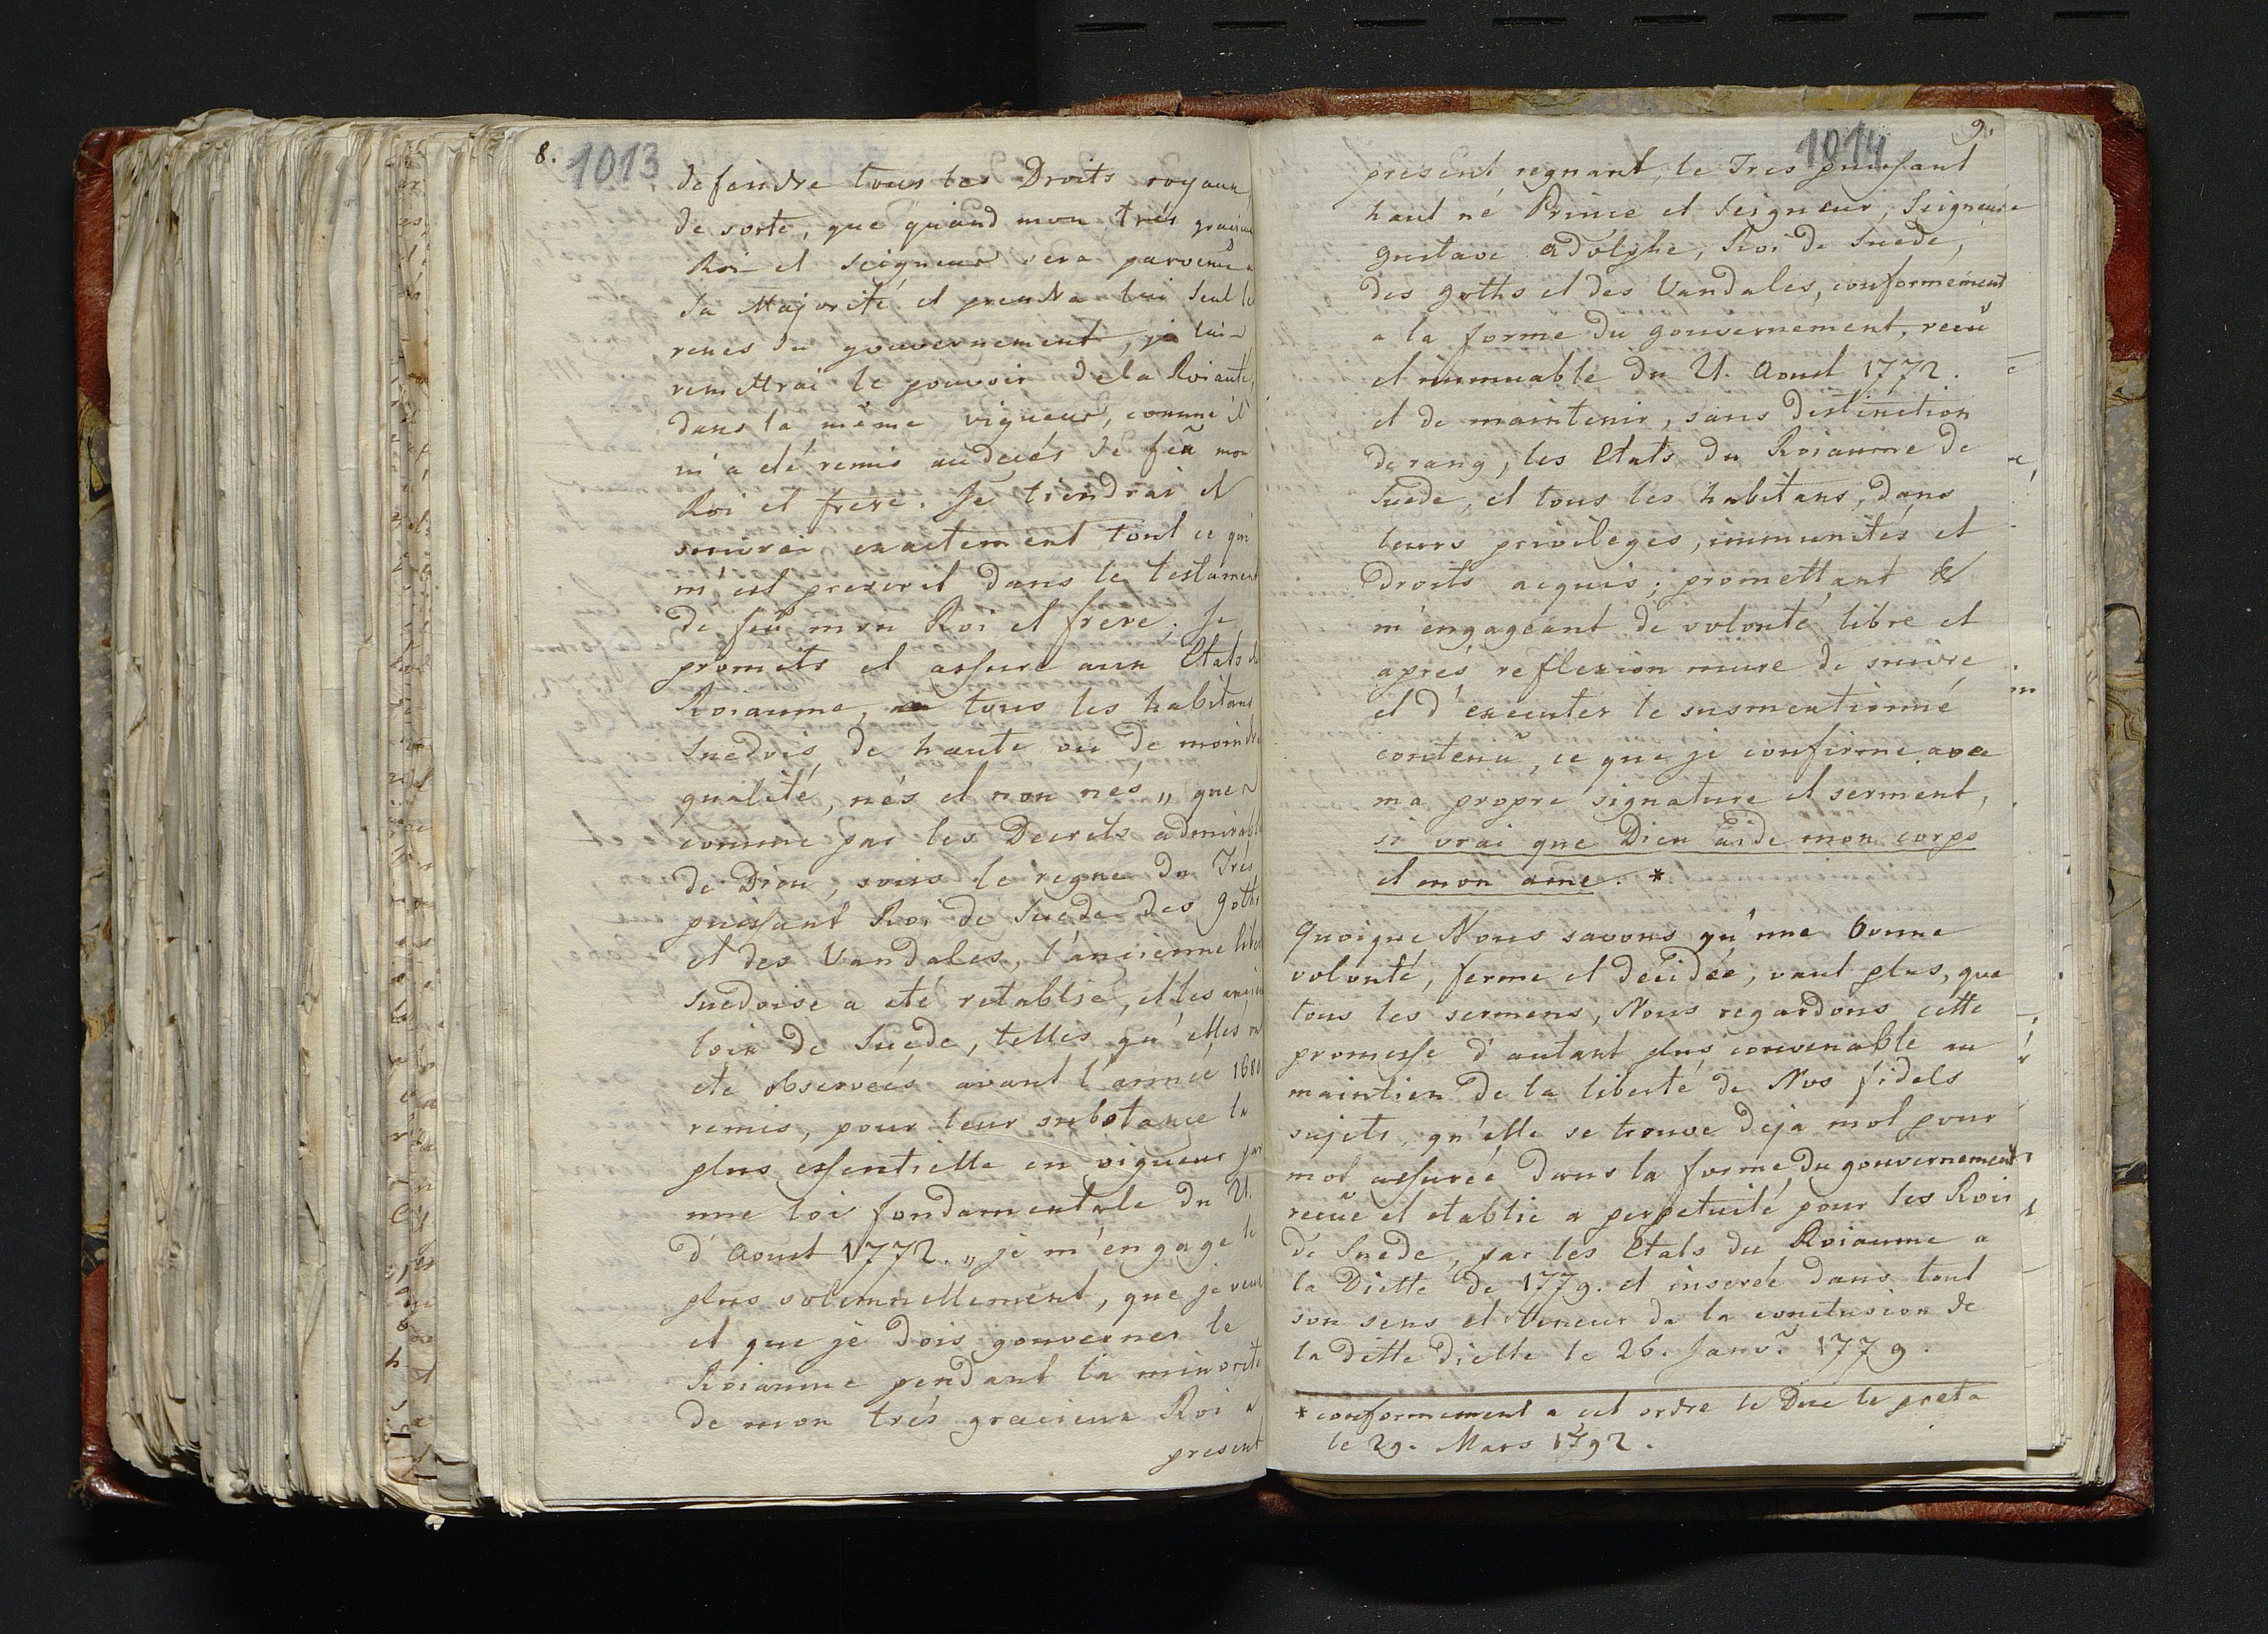 8.
1013
defendre tous les Droits royaux,
de sorte, que quand mon trés gracieux
Roi et Seigneur sera parvenu a
sa Majorité et prendra lui seul le
renes du gouvernement, je lui
remettrai le pouvoir dela Roiauté,
dans la même vigueur, comme il
m'a eté remis audecés de feu mon
Roi et frere. Je tiendrai et
suivrai exactement tout ce qui
m'est prescrit dans le testament
de feu mon Roi et frere; Je
promets et assure aux Etats du
Roiaume, a tous les habitans
Suedois, de haute ou de moindre
qualité, nés et non nés „ que
comme par les Decrets admirable
de Dieu, sous le regne du Trés
puissant Roi de Suede des goths
et des Vandales, l'ancienne liber
suedoise a eté retablie, et les ancien
loix de Suede, telles qu'elles on
eté observeés avant l'année 1680
remis, pour leur substance la
plus essentielle en vigueur par
une loi fondamentale du 21.
d'Aoust 1772. „ je m'engage le
plus solemnellement, que je veux
et que je dois gouverner le
Roiaume pendant la minorité
de mon trés gracieux Roi a
present
9.
1014
present regnant, le Tres puissant
haut né Prince et Seigneur, Seigneur
Gustave Adolphe, Roi de Suede,
des goths et des Vandales, conformément
a la forme du gouvernement, recû
et immuable du 21. Aoust 1772.
et de maintenir, sans distinction
de rang, les Etats du Roiaume de
Suede, et tous les habitans, dans
leurs privileges, immunités et
Droits acquis; promettant &
m'engageant de volonté libre et
aprés reflexion mure de suivre
et d'executer le susmentionné
contenu, ce que je confirme avec
ma propre signature et serment,
si vrai que Dieu aide mon corps
et mon ame. *
Quoique Nous savons qu'une bonne
volonté, ferme et décidée, vaut plus, que
tous les sermens, Nous regardons cette
promesse d'autant plus convenable au
maintien de la liberté de Nos fidels
sujets, qu'elle se trouve deja mot pour
mot assureé dans la forme du gouvernement
recue et etablie a perpetuité pour les Rois
de Suede, par les Etats du Roiaume a
la Diette de 1779. et inserée dans tout
son sens et teneur de la conclusion de
la ditte diette le 26. Janv. 1779.
* conformement a cet ordre le Duc le preta
le 29. Mars 1792.